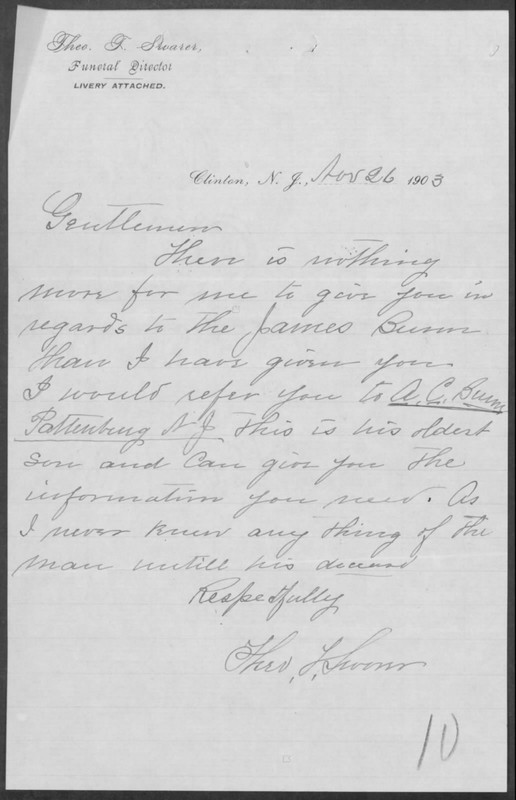 Theo. F. Swarer,
Funeral Director
LIVERY ATTACHED.
Clinton, N. J., Nov 26 1903
Gentlemen
There is nothing
more for me to give you in
regards to the James Bunn
than I have given you
I would refer you to A. C. Bunn
Pattenburg N J This is his oldest
son and can give you the
information you need. As
I never knew any thing of the
man untill his decease
Respectfully
Theo, F,
10